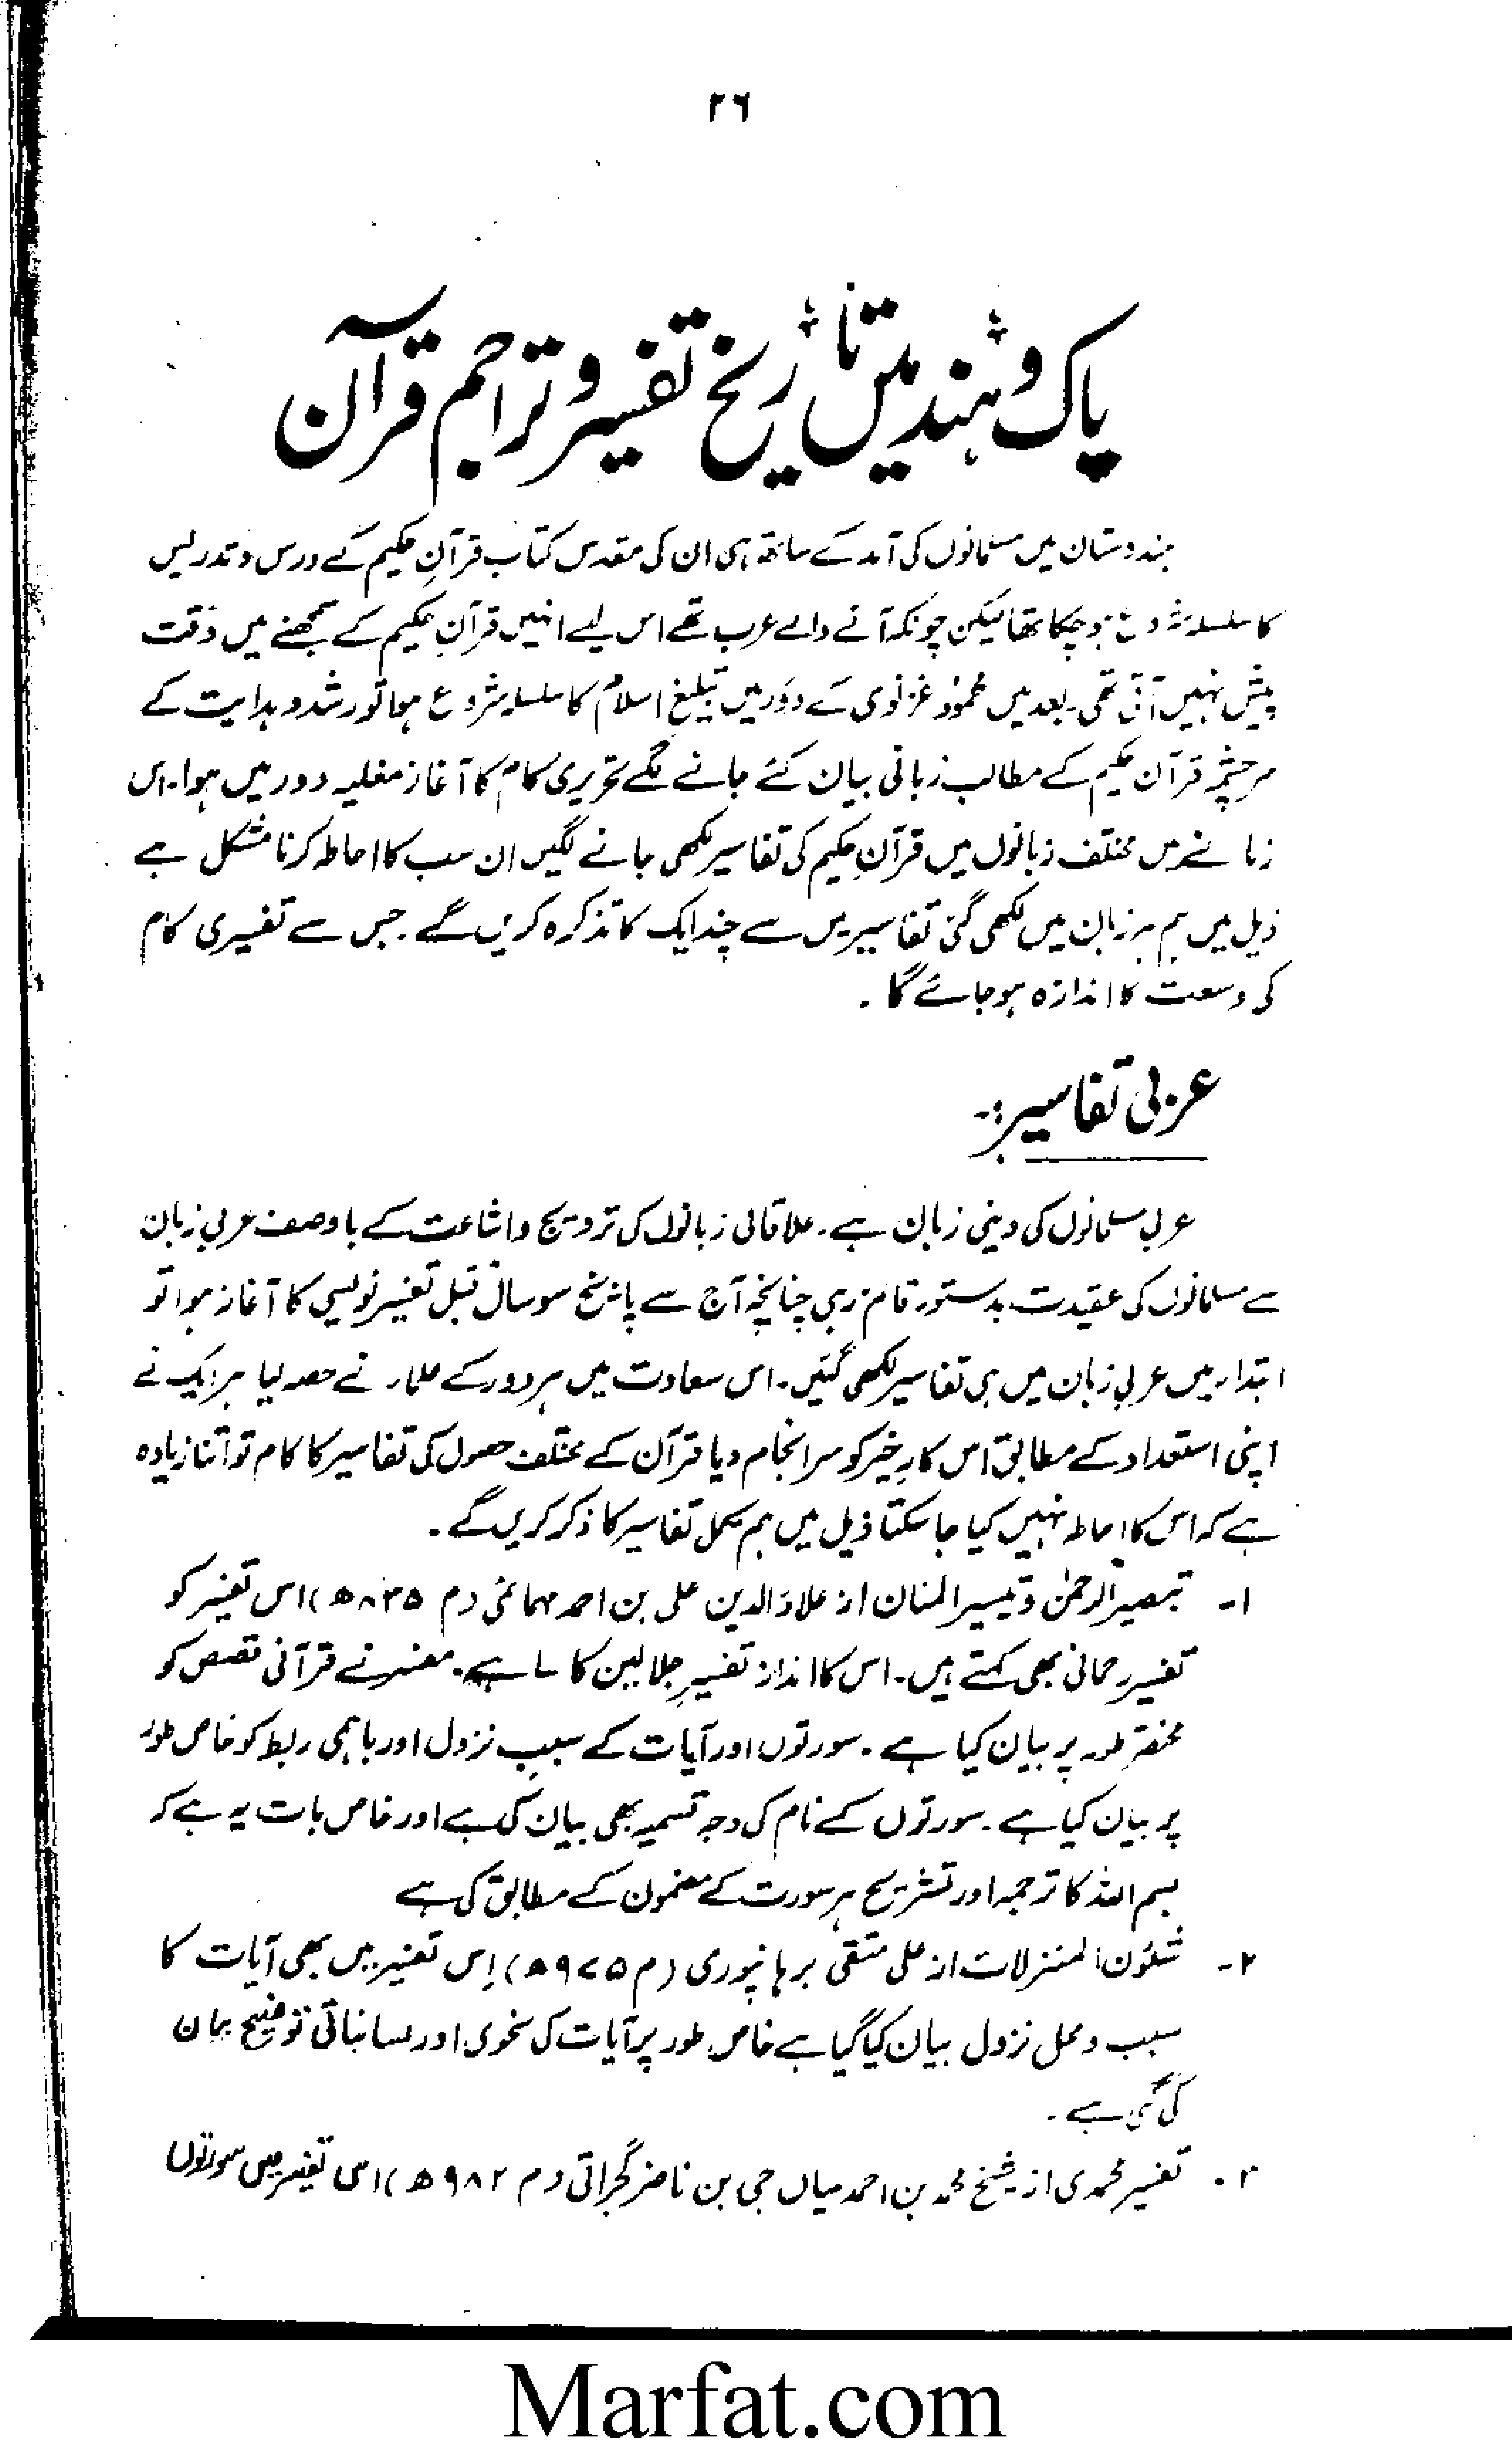 ۲۶
پاک و ہند میں تاریخ تفسیر و تراجم قرآن
ہندوستان میں مسلمانوں کی آمد کے ساتھ ہی ان کی مقدس کتاب قرآنِ حکیم کے درس و تدریس
کا سلسلہ شروع ہو چکا تھا لیکن چونکہ آنے والے عرب تھے اس لیے انہیں قرآنِ حکیم کے سمجھنے میں دقت
پیش نہیں آئی تھی۔ بعد میں محمود غزنوی کے دَور میں تبلیغ اسلام کا سلسلہ شروع ہوا تو رشد و ہدایت کے
سرچشمہ قرآن حکیم کے مطالب زبانی بیان کئے جانے لگے تحریری کام کا آغاز مغلیہ دور میں ہوا۔ اس
زمانے میں مختلف زبانوں میں قرآنِ حکیم کی تفاسیر لکھی جانے لگیں ان سب کا احاطہ کرنا مشکل ہے
ذیل میں ہم ہر زبان میں لکھی گئی تفاسیر میں سے چند ایک کا تذکرہ کریں گے۔ جس سے تفسیری کام
کی وسعت کا اندازہ ہو جائے گا۔
عربی تفاسیر:-
عربی مسلمانوں کی دینی زبان ہے۔ علاقائی زبانوں کی ترویج و اشاعت کے باوصف عربی زبان
سے مسلمانوں کی عقیدت بدستور قائم رہی چنانچہ آج سے پانچ سو سال قبل تفسیر نویسی کا آغاز ہوا تو
ابتداء میں عربی زبان میں ہی تفاسیر لکھی گئیں۔ اس سعادت میں ہر دور کے علماء نے حصہ لیا ہر ایک نے
اپنی استعداد کے مطابق اس کارِ خیر کو سرانجام دیا قرآن کے مختلف حصول کی تفاسیر کا کام تو اتنا زیادہ
ہے کہ اس کا احاطہ نہیں کیا جا سکتا ذیل میں ہم مکمل تفاسیر کا ذکر کریں گے۔
۱۔ تبصیر الرحمٰن و تیسیر المنان از علاؤ الدین علی بن احمد مہائمی (م ۸۳۵ھ) اس تفسیر کو
تفسیر رحمانی بھی کہتے ہیں۔ اس کا انداز تفسیرِ جلالین کا سا ہے۔ مفسر نے قرآنی قصص کو
مختصر طور پر بیان کیا ہے۔ سورتوں اور آیات کے سببِ نزول اور باہمی ربط کو خاص طور
پر بیان کیا ہے۔ سورتوں کے نام کی وجہ تسمیہ بھی بیان کی ہے اور خاص بات یہ ہے کہ
بسم اللہ کا ترجمہ اور تشریح ہر سورت کے مضمون کے مطابق کی ہے
۲۔ شئون المنزلات از علی متقی برہانپوری (م ۹۷۵ھ) اِس تفسیر میں بھی آیات کا
سبب و محل نزول بیان کیا گیا ہے خاص طور پر آیات کی نحوی اور لسانیاتی توضیح بیان
کی گئی ہے۔
۳۔ تفسیر محمدی از شیخ محمد بن احمد میاں جی بن ناصر گجراتی (م ۹۸۲ھ) اس تفسیر میں سورتوں
Marfat.com